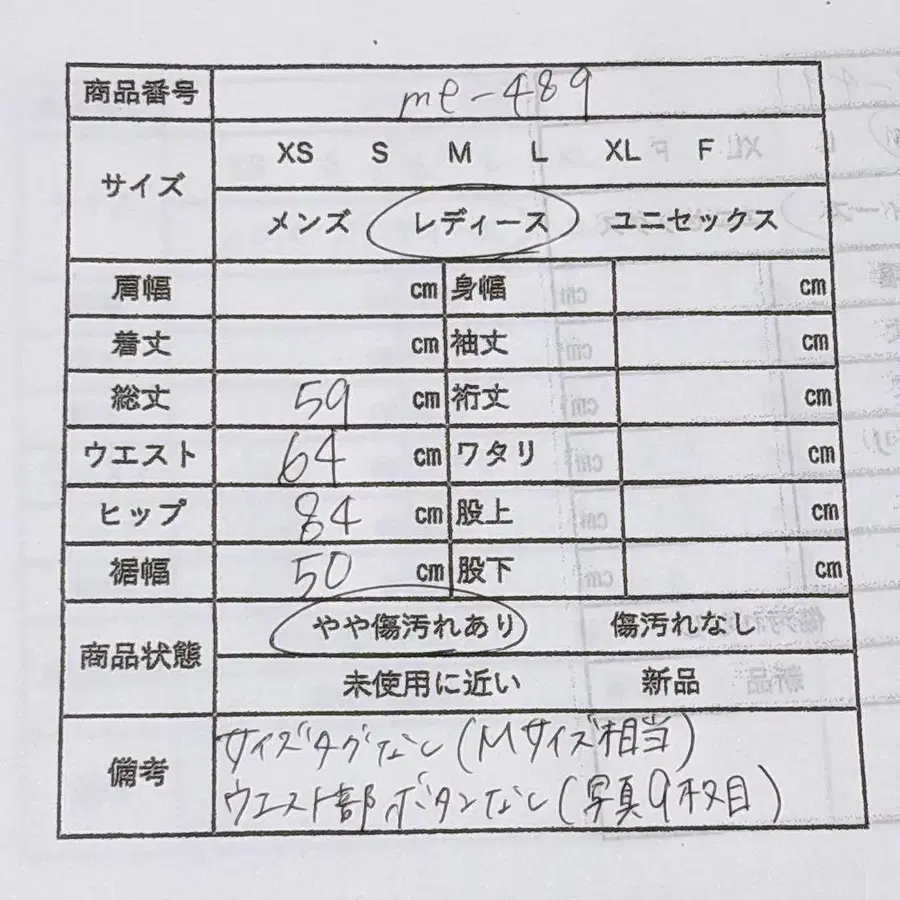 商品番号 me-489
サイズ XS S M L XL F
メンズ レディース ユニセックス
肩幅 cm 身幅 cm
着丈 cm 袖丈 cm
総丈 59 cm 裄丈 cm
ウエスト 64 cm ワタリ cm
ヒップ 84 cm 股上 cm
裾幅 50 cm 股下 cm
商品状態 やや傷汚れあり 傷汚れなし
未使用に近い 新品
備考 サイズタグなし(Mサイズ相当)
ウエスト部ボタンなし(写真9枚目)